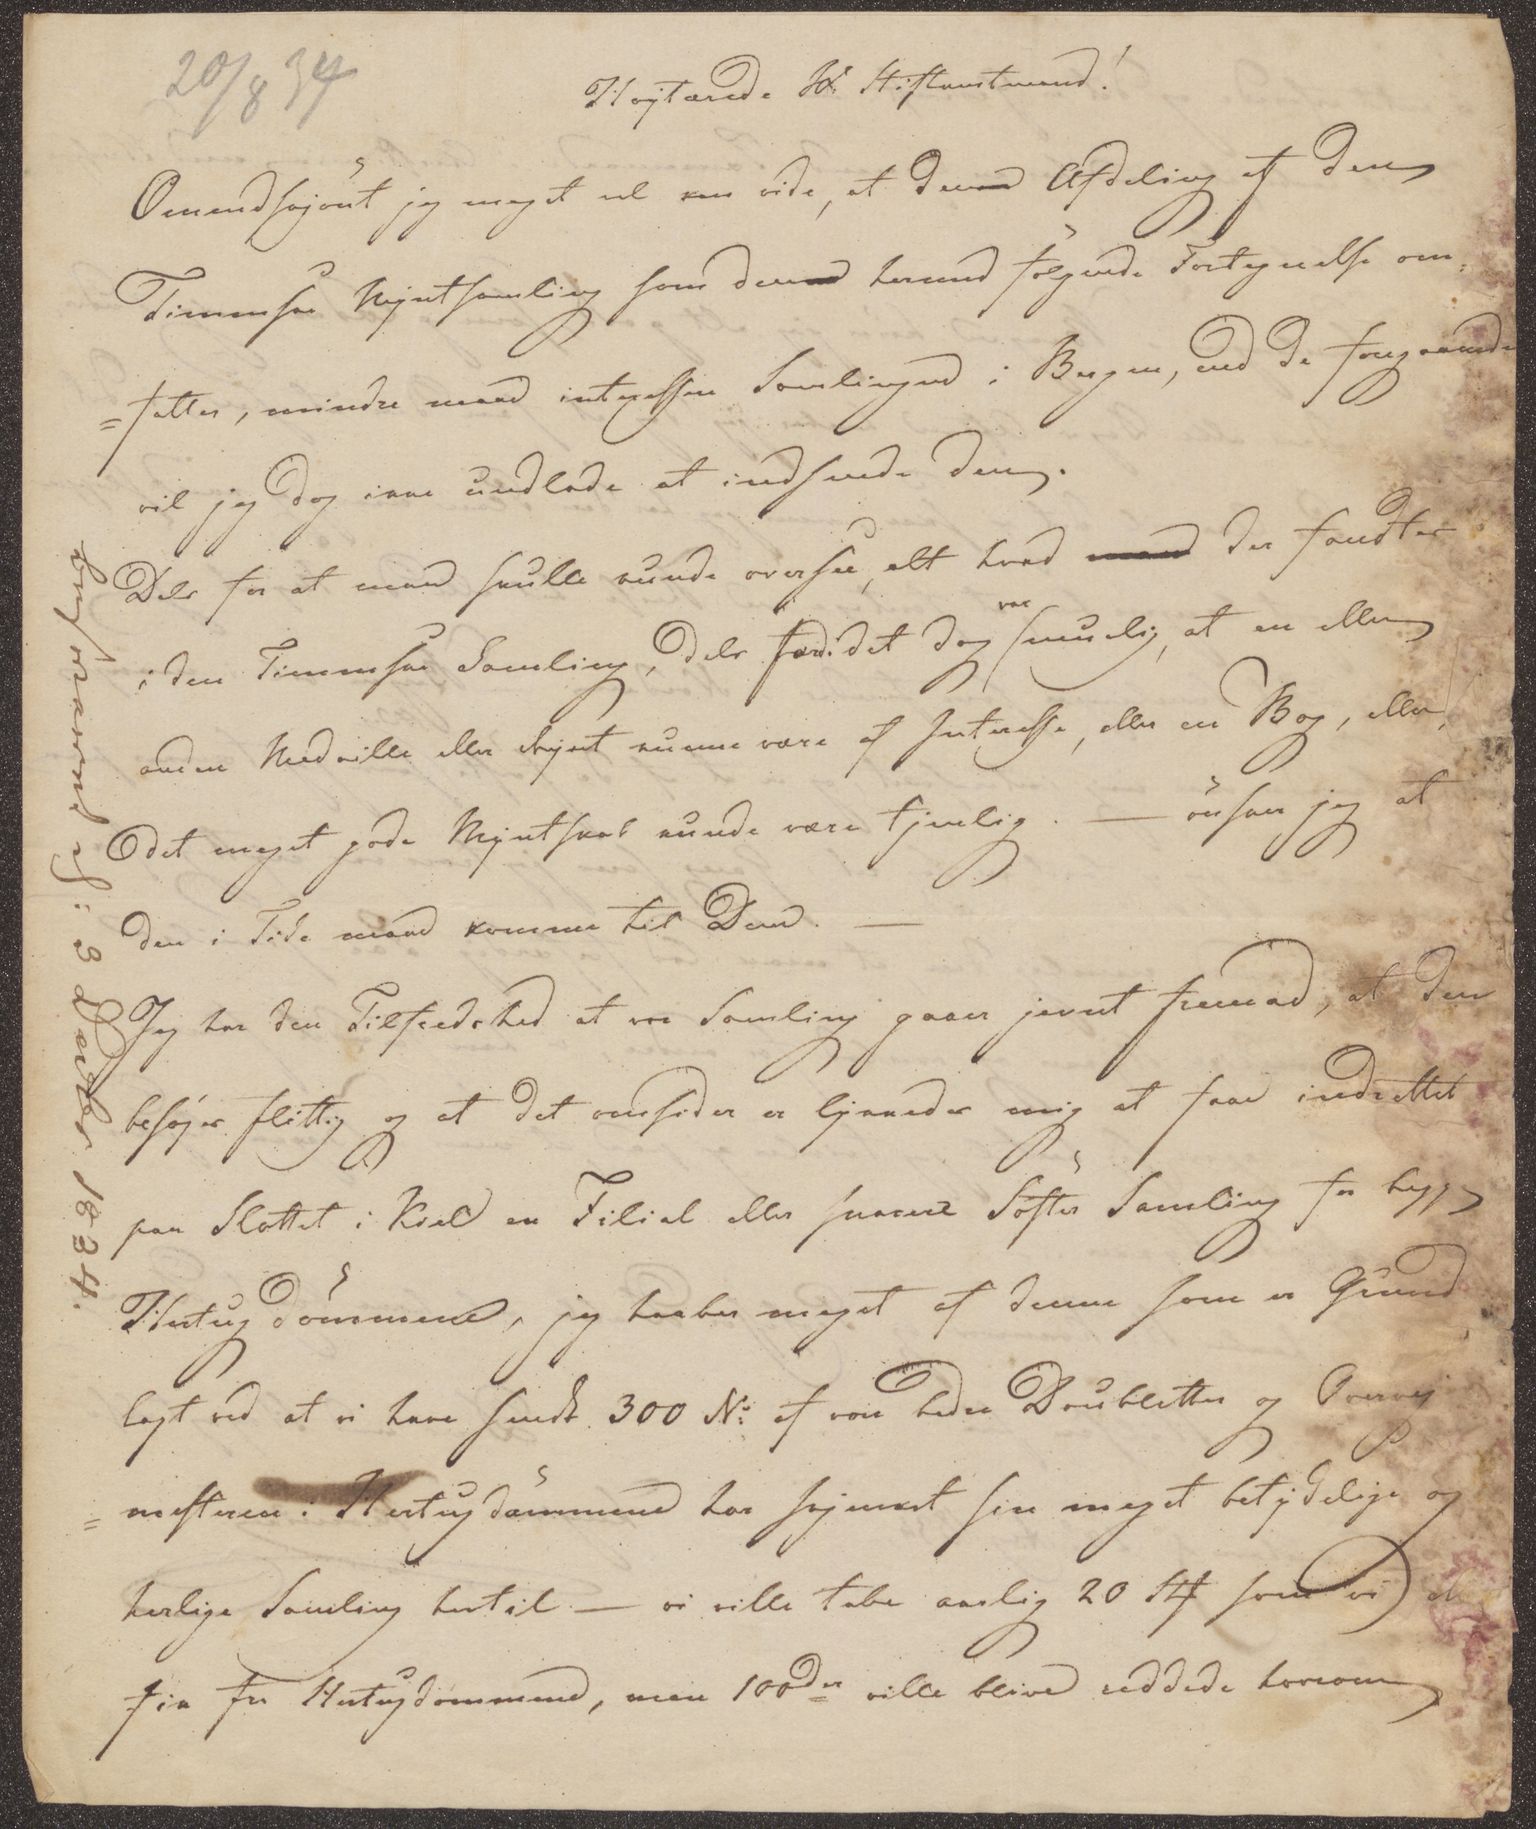 20/8 34
Höytærede Hr. Stiftamtmand!
Omendskjönt jeg meget vel kan vide, at denne Afdeling af den
Timmske Myntsamling som denne hermed fölgende Fortegnelse om-
=fatter, mindre maae interessere Samlingen i Bergen, end de foregaaende
vil jeg dog ikke undlade at indsende den.
Dels for at man skulle kunde oversee, alt hvad der fandtes
i den Timmske Samling, dels fordi det dog var muelig, at en eller
anden Medaille eller Mynt kunne være af Interesse, eller en Bog, eller
det meget gode Myntskab kunde være tjenlig. — önsker jeg at
den i Tide maae komme til Dem. —
Jeg har den Tilfredshed at vor Samling gaaer jevnt fremad, at den
besøges flittig og at det omsider er lykkedes mig at faae indrettet
paa Slottet i Kiel en Filial eller snarere Söster Samling for begge
Hertugdömmene, jeg haaber meget af denne som er Grund
lagt ved at vi have sendt 300 No. af vore bedre Doubletter og Overvej
=mesteren i Hertugdömmene har skjenket sin meget betydelige og
herlige Samling hertil — vi ville tabe aarlig 20 St som vi
fik fra Hertugdömmene, men 100der ville blive reddede
besvaret af: 3 Decbr 1834.